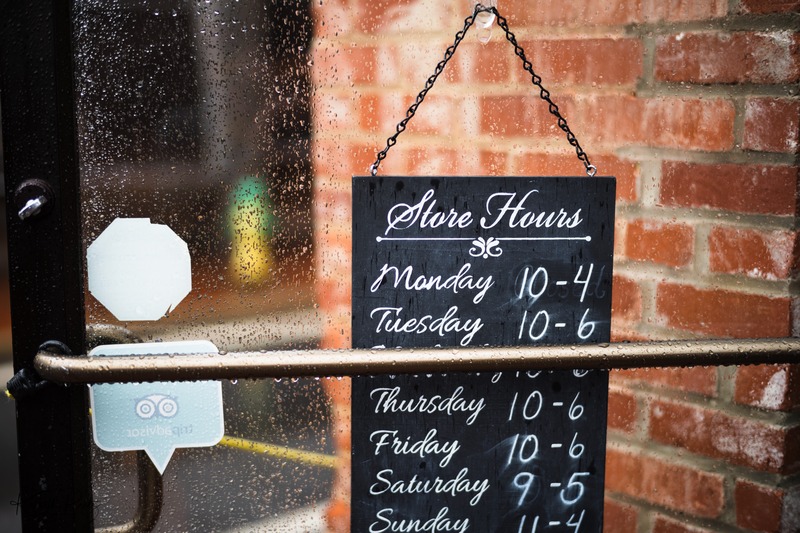 Store Hours
Monday 10-4
Tuesday 10-6
Thursday 10-6
Friday 10-6
Saturday 9-5
Sunday 11-4
tripadvisor